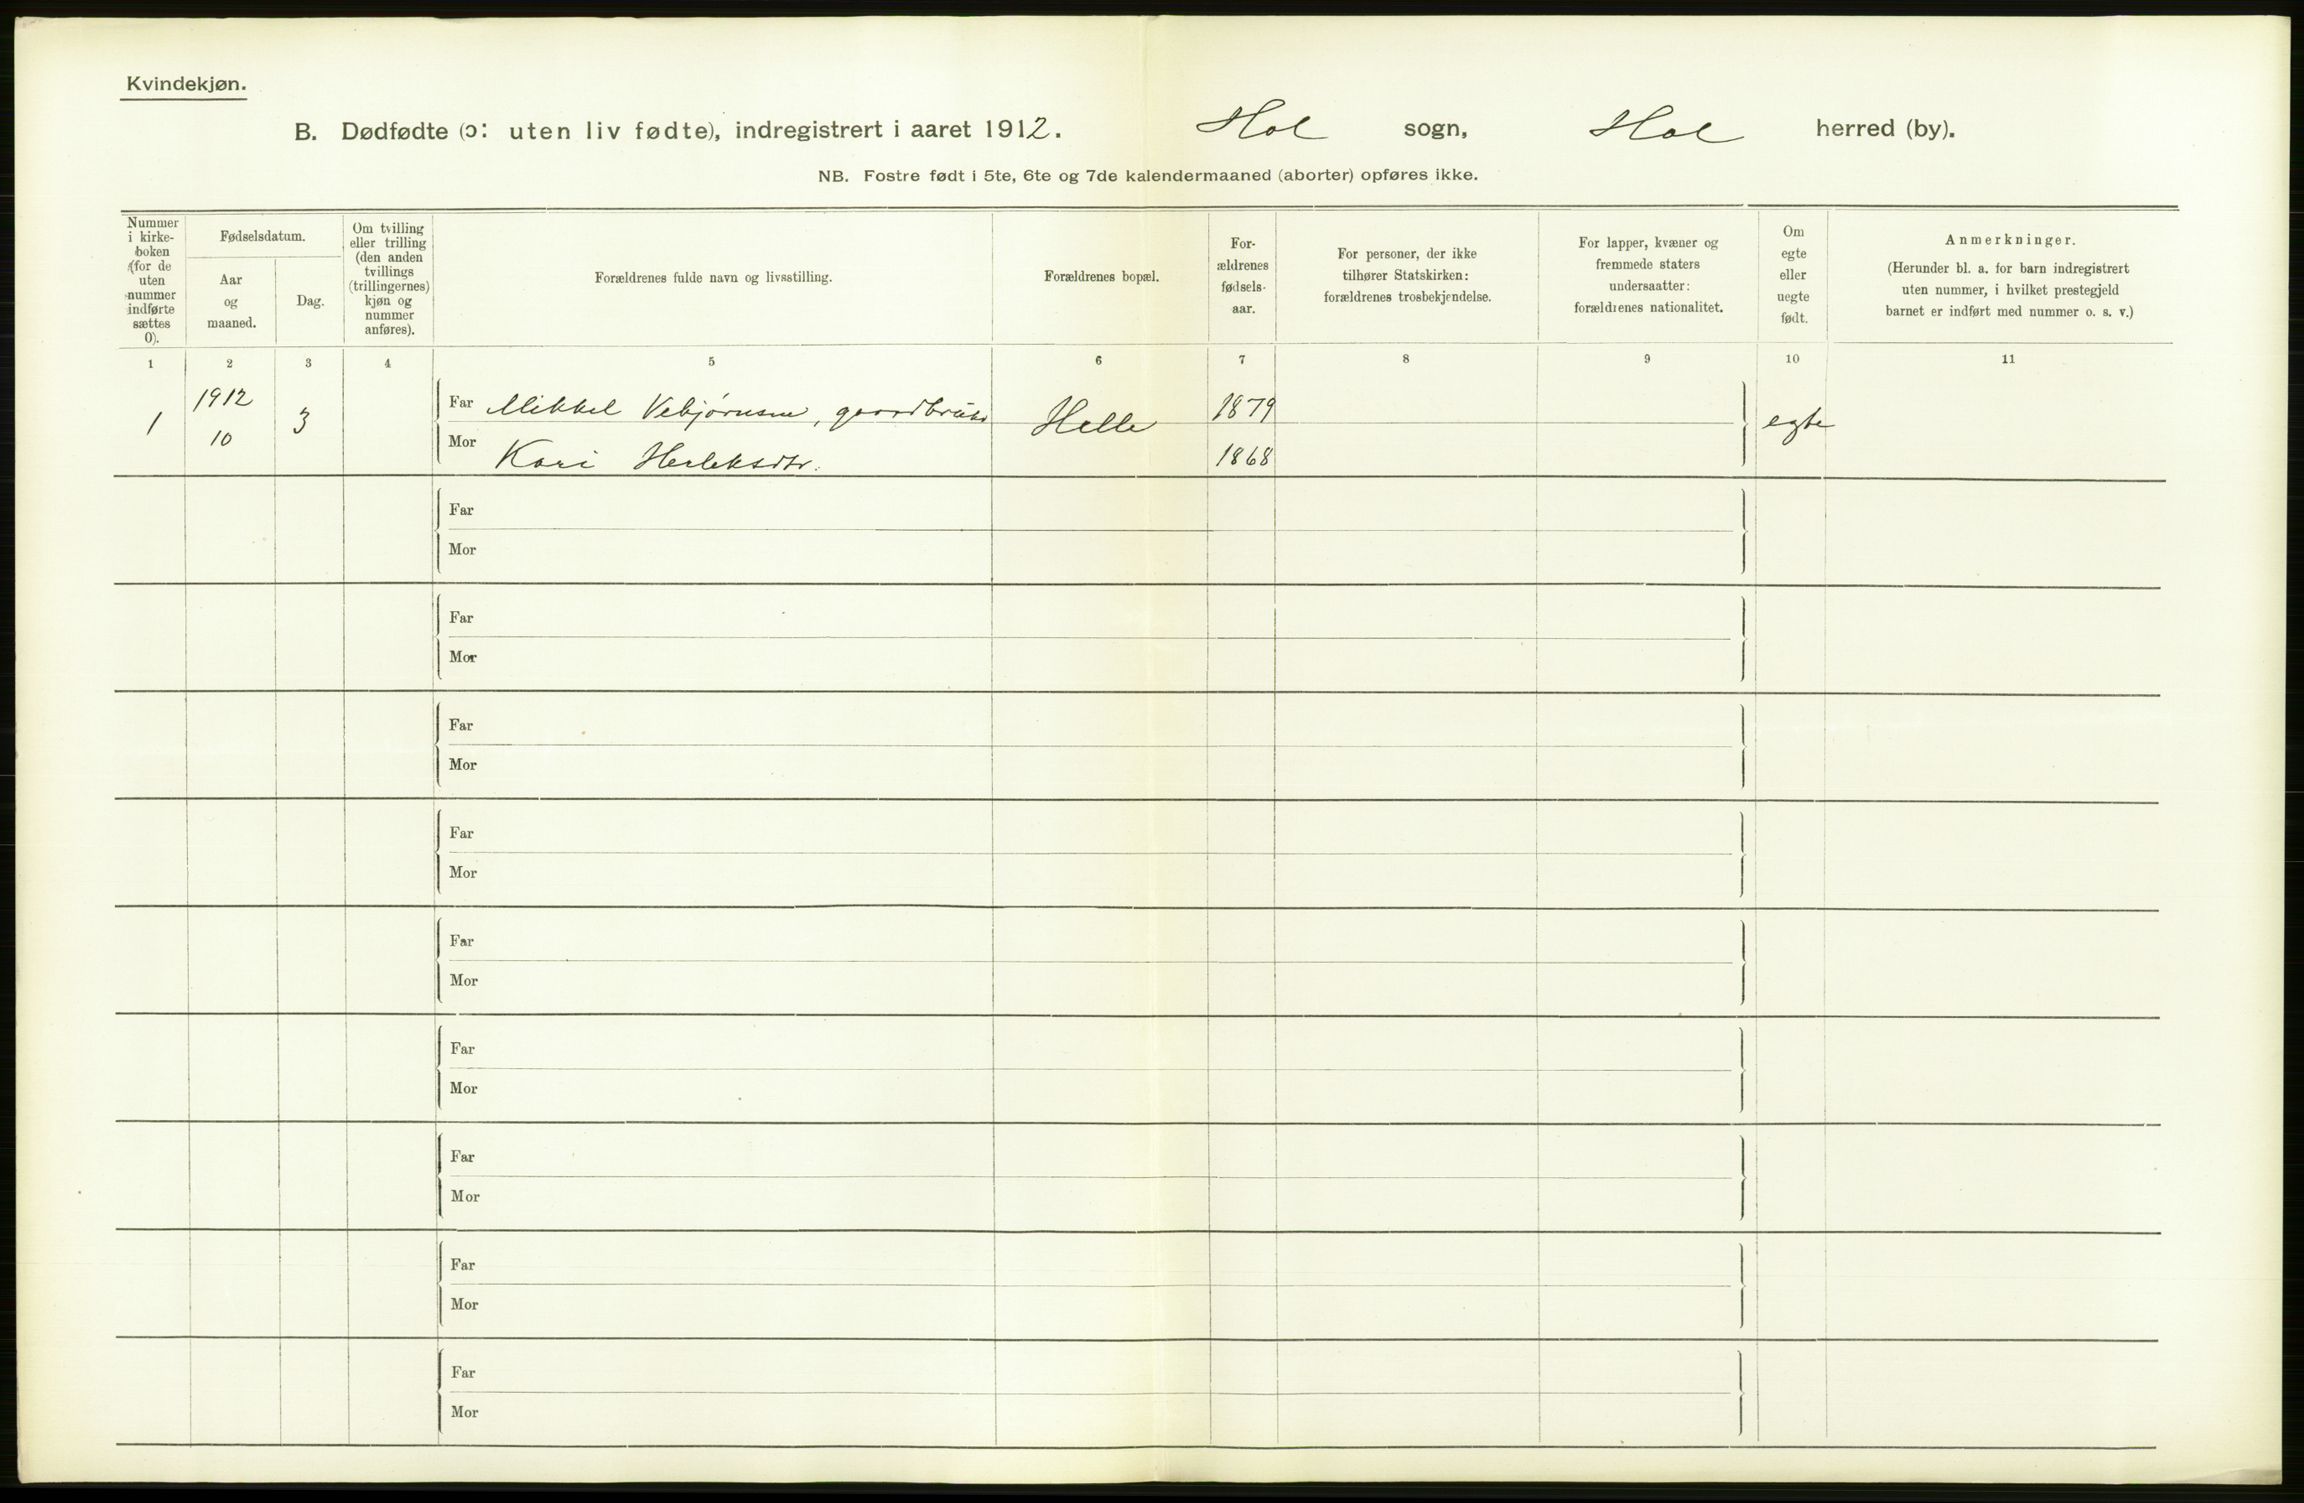 Kvindekjøn.
B. Dødfødte (ɔ: uten liv fødte), indregistrert i aaret 1912. Hol sogn, Hol herred (by).
NB. Fostre født i 5te, 6te og 7de kalendermaaned (aborter) opføres ikke.
Nummer
i kirke-
boken
(for de
uten
nummer
indførte
sættes
0).
Fødselsdatum.
Aar
og
maaned.
Dag.
Om tvilling
eller trilling
(den anden
tvillings
(trillingernes)
kjøn og
nummer
anføres).
Forældrenes fulde navn og livsstilling.
Forældrenes bopæl.
For-
ældrenes
fødsels-
aar.
For personer, der ikke
tilhører Statskirken:
forældrenes trosbekjendelse.
For lapper, kvæner og
fremmede staters
undersaatter:
forældrenes nationalitet.
Om
egte
eller
uegte
født.
Anmerkninger.
(Herunder bl. a. for barn indregistrert
uten nummer, i hvilket prestegjeld
barnet er indført med nummer o. s. v.)
1 2 3 4 5 6 7 8 9 10 11
1 1912 10 3
Far Mikkel Vebjørnsen, gaardbruker Helle 1879 egte
Mor Kari Herleksdtr. 1868
Far
Mor
Far
Mor
Far
Mor
Far
Mor
Far
Mor
Far
Mor
Far
Mor
Far
Mor
Far
Mor